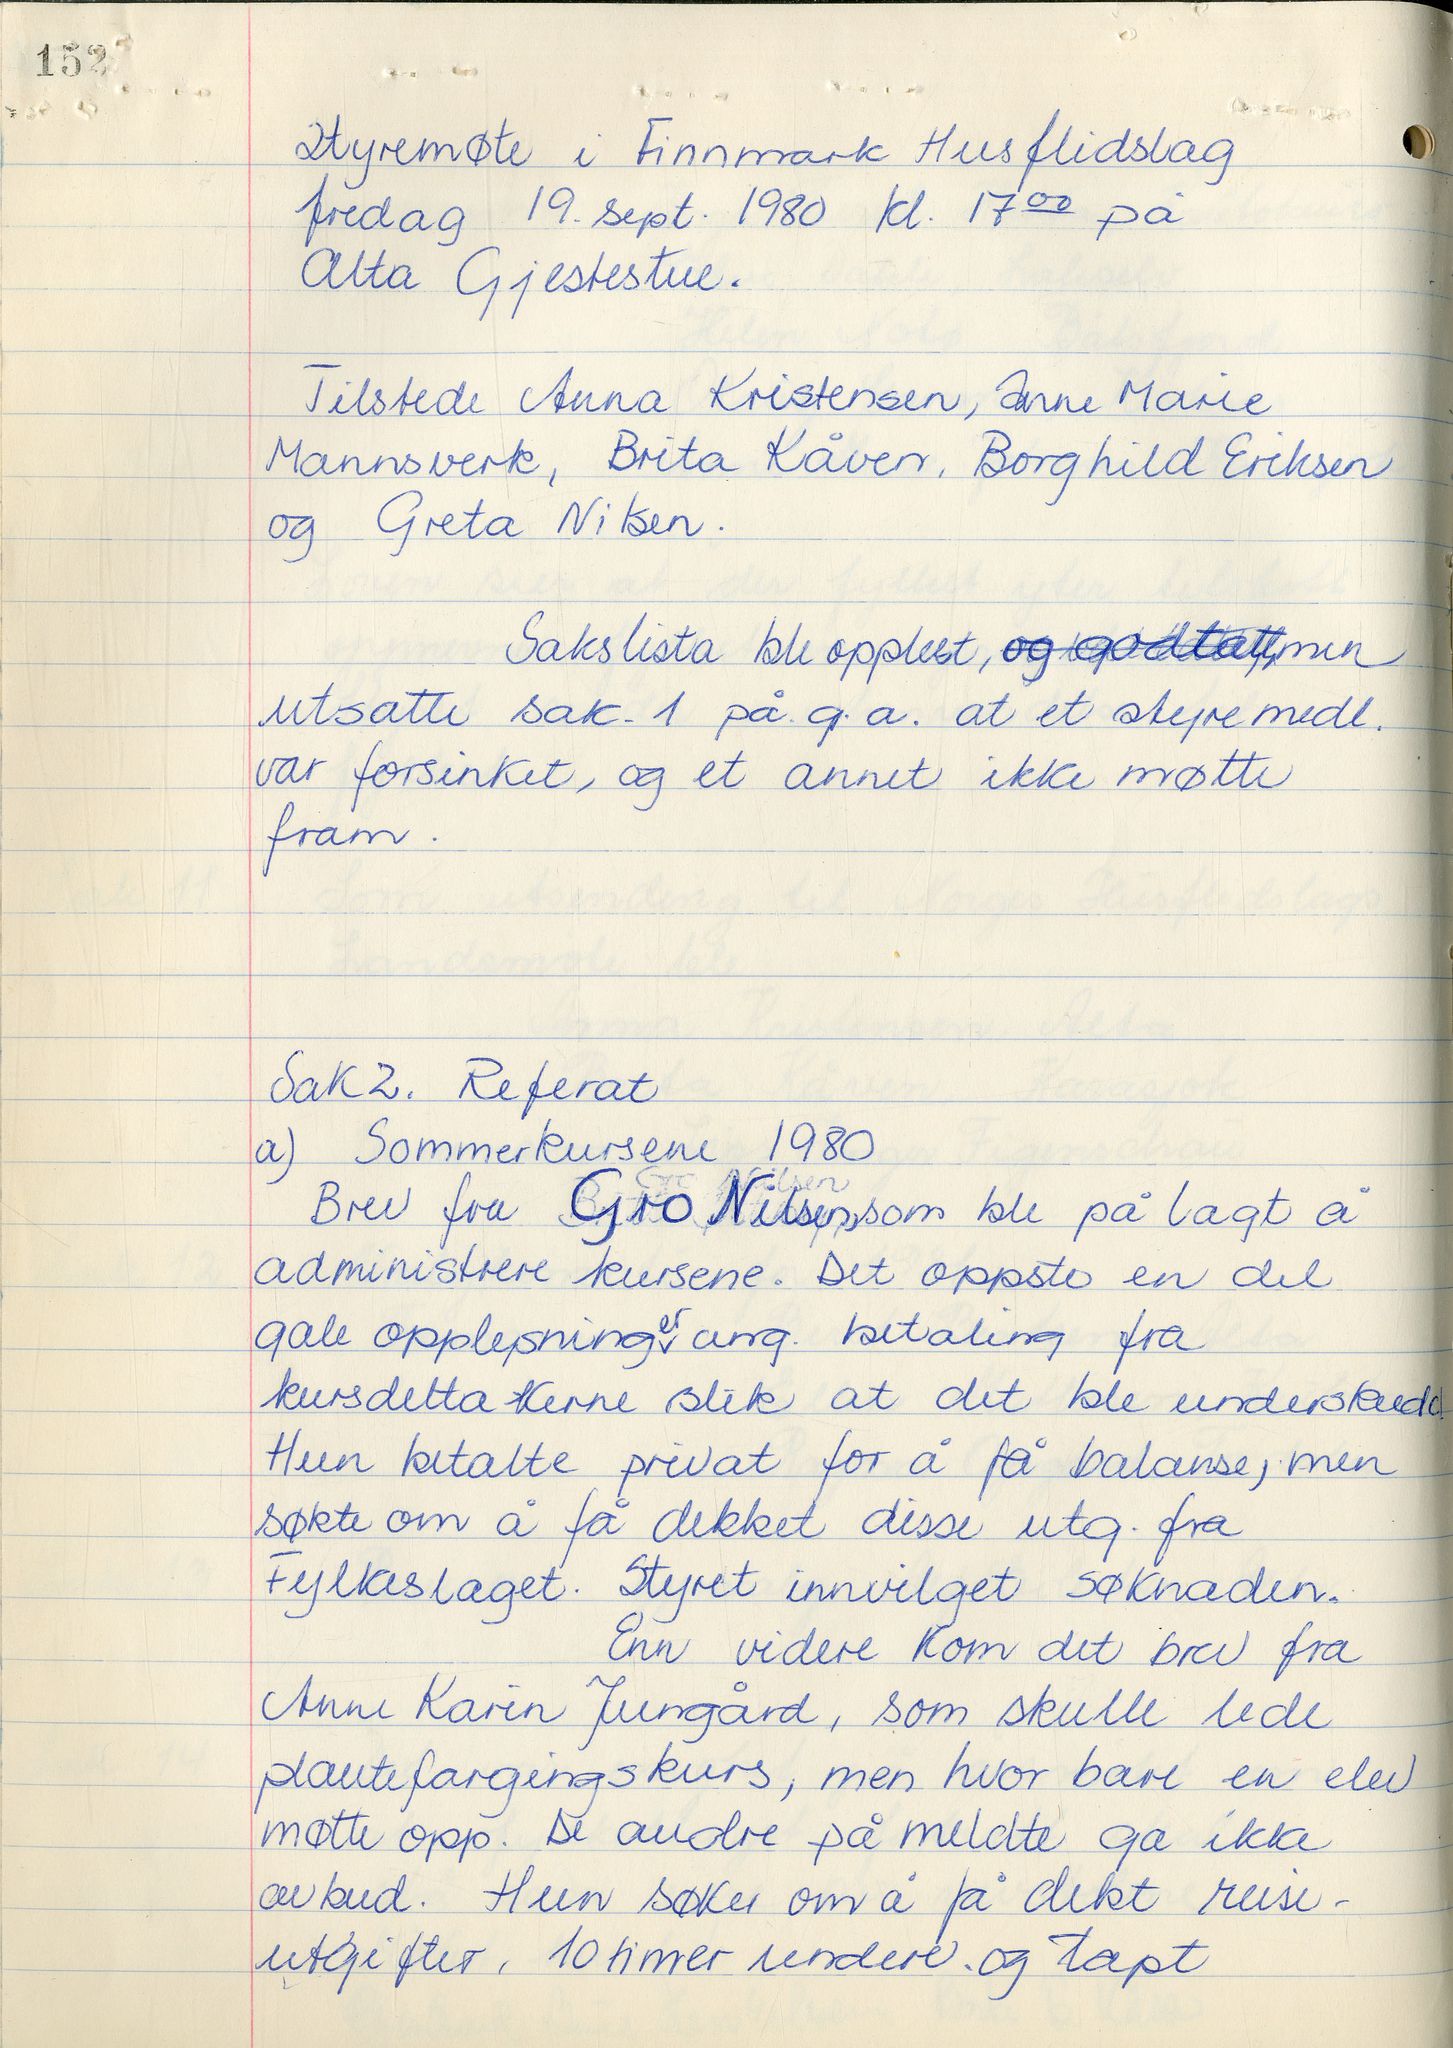 152
Styremøte i Finnmark Husflidslag
fredag 19. sept. 1980 kl. 17 00 på
Alta Gjestestue.
Tilstede Anna Kristensen, Anne Marie
Mannsverk, Brita Kåven, Borghild Eriksen
og Greta Nilsen.
Sakslista ble opplest, og godtatt, men
utsatte sak 1 på g.a. at et styremedl.
var forsinket, og et annet ikke møtte
fram.
Sak 2. Referat
a) Sommerkursene 1980
Gro Nilsen
Brev fra Gro Nilsen, som ble på lagt å
administrere kursene. Det oppsto en del
gale opplysninger ang. betaling fra
kursdeltakerne slik at det ble underskudd
Hun betalte privat for å få balanse, men
søkte om å få dekket disse utg. fra
Fylkeslaget. Styret innvilget søknaden.
Enn videre kom det brev fra
Anne Karin Jungård, som skulle lede
plantefargingskurs, men hvor bare en elev
møtte opp. De andre på meldte ga ikke
avbud. Hun søker om å få dekt reise-
utgifter, 10 timer underv. og tapt